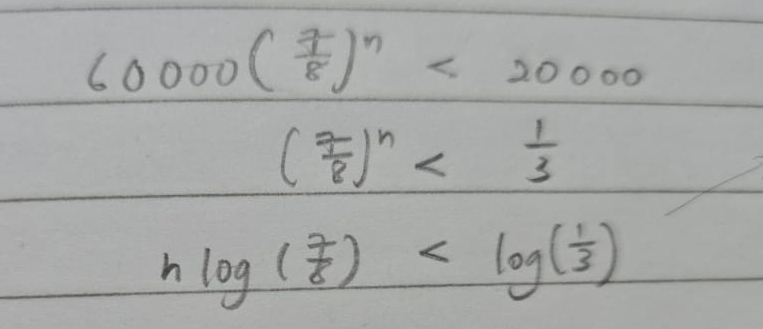 60000(7/8)ⁿ < 20000
(7/8)ⁿ < 1/3
n log(7/8) < log(1/3)